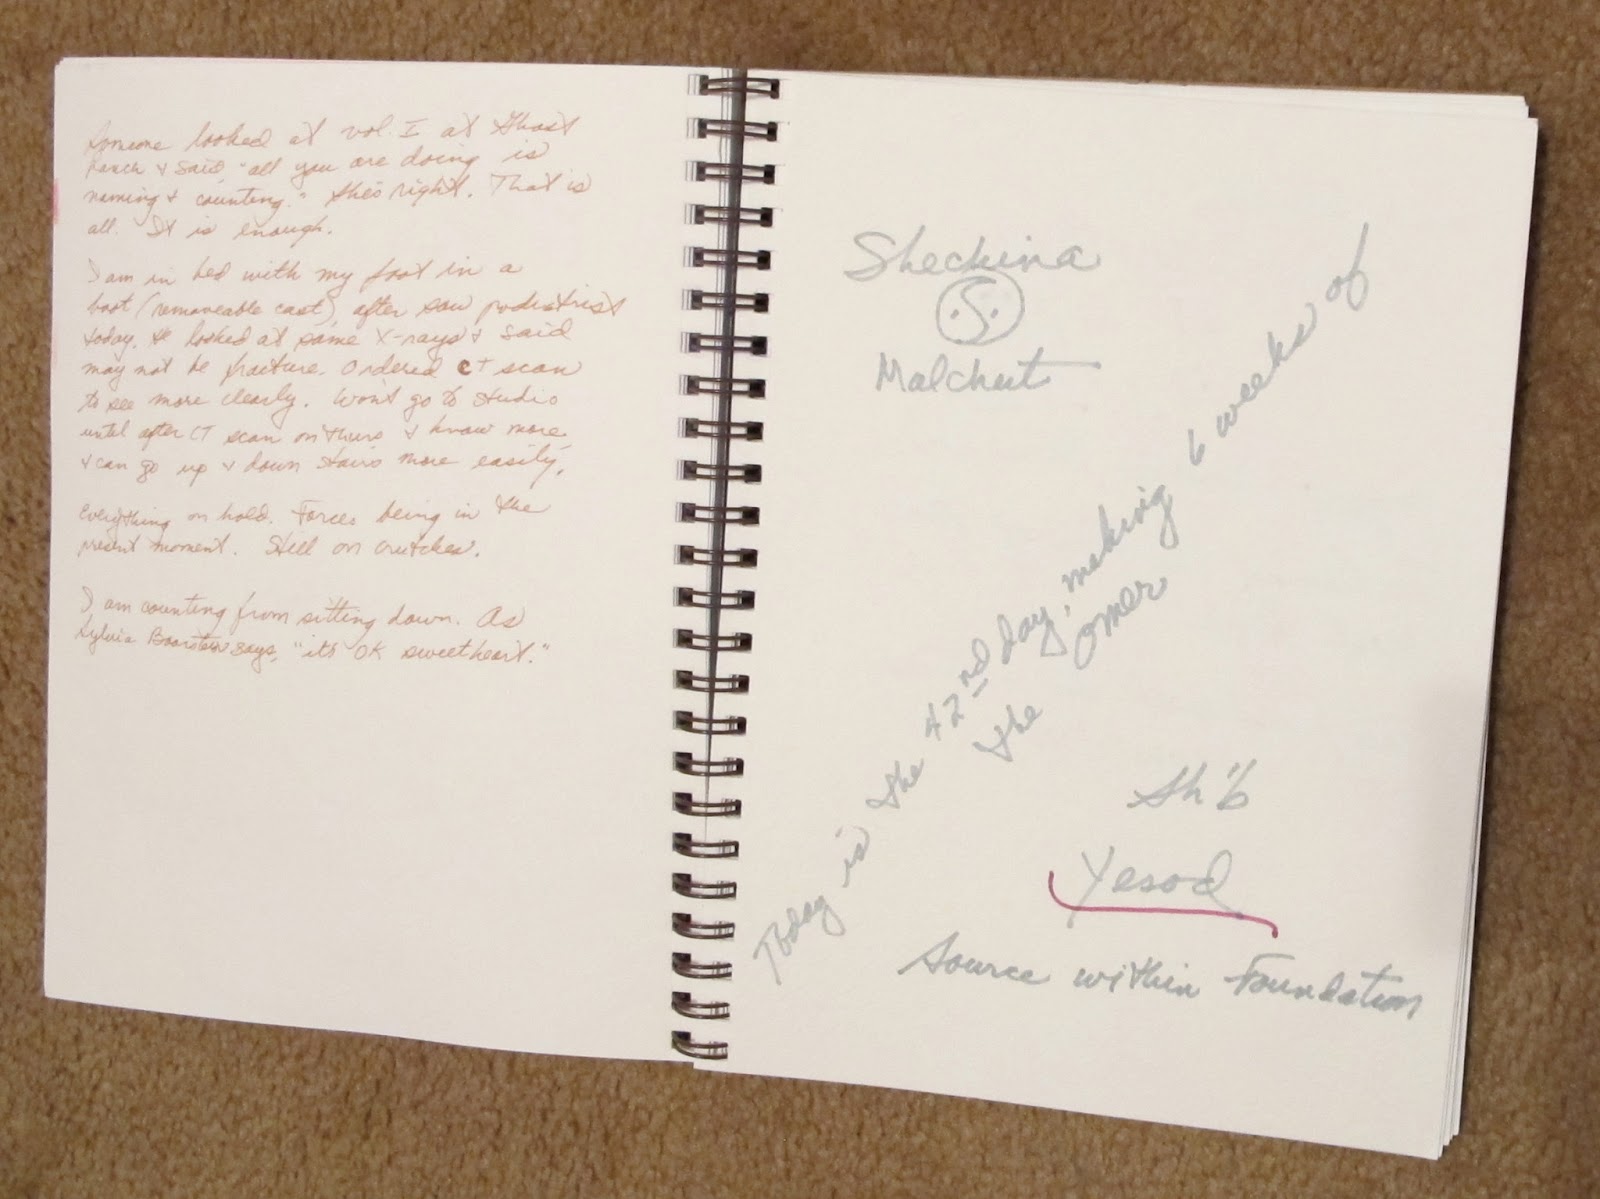 Someone looked at vol. I at Ghost
Ranch & said, "all you are doing is
naming & counting." She's right. That is
all. It is enough.
I am in bed with my foot in a
boot (removeable cast) after saw podiatrist
today. He looked at same X-rays & said
may not be fracture. Ordered CT scan
to see more clearly. Won't go to studio
until after CT scan on thurs & know more
& can go up & down stairs more easily.
Everything on hold. Forces being in the
present moment. Still on crutches.
I am counting from sitting down. As
Sylvia Boorstein says, "it's OK sweetheart."
Shechina
S
Malchut
Today is the 42nd day, making 6 weeks of
the omer
Sh'b
Yesod
Source within Foundation